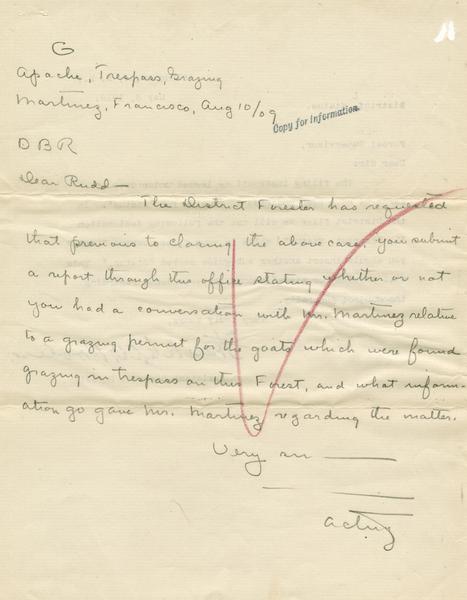 G
Apache, Trespass, Grazing
Martinez, Francisco, Aug 10/09
Copy for information.
D B R
Dear Rudd—
The District Forester has requested
that previous to closing the above case, you submit
a report through this office stating whether or not
you had a conversation with Mr. Martinez relative
to a grazing permit for the goats which were found
grazing in trespass on this Forest, and what inform-
ation go gave Mr. Martinez regarding the matter.
Very
Acting